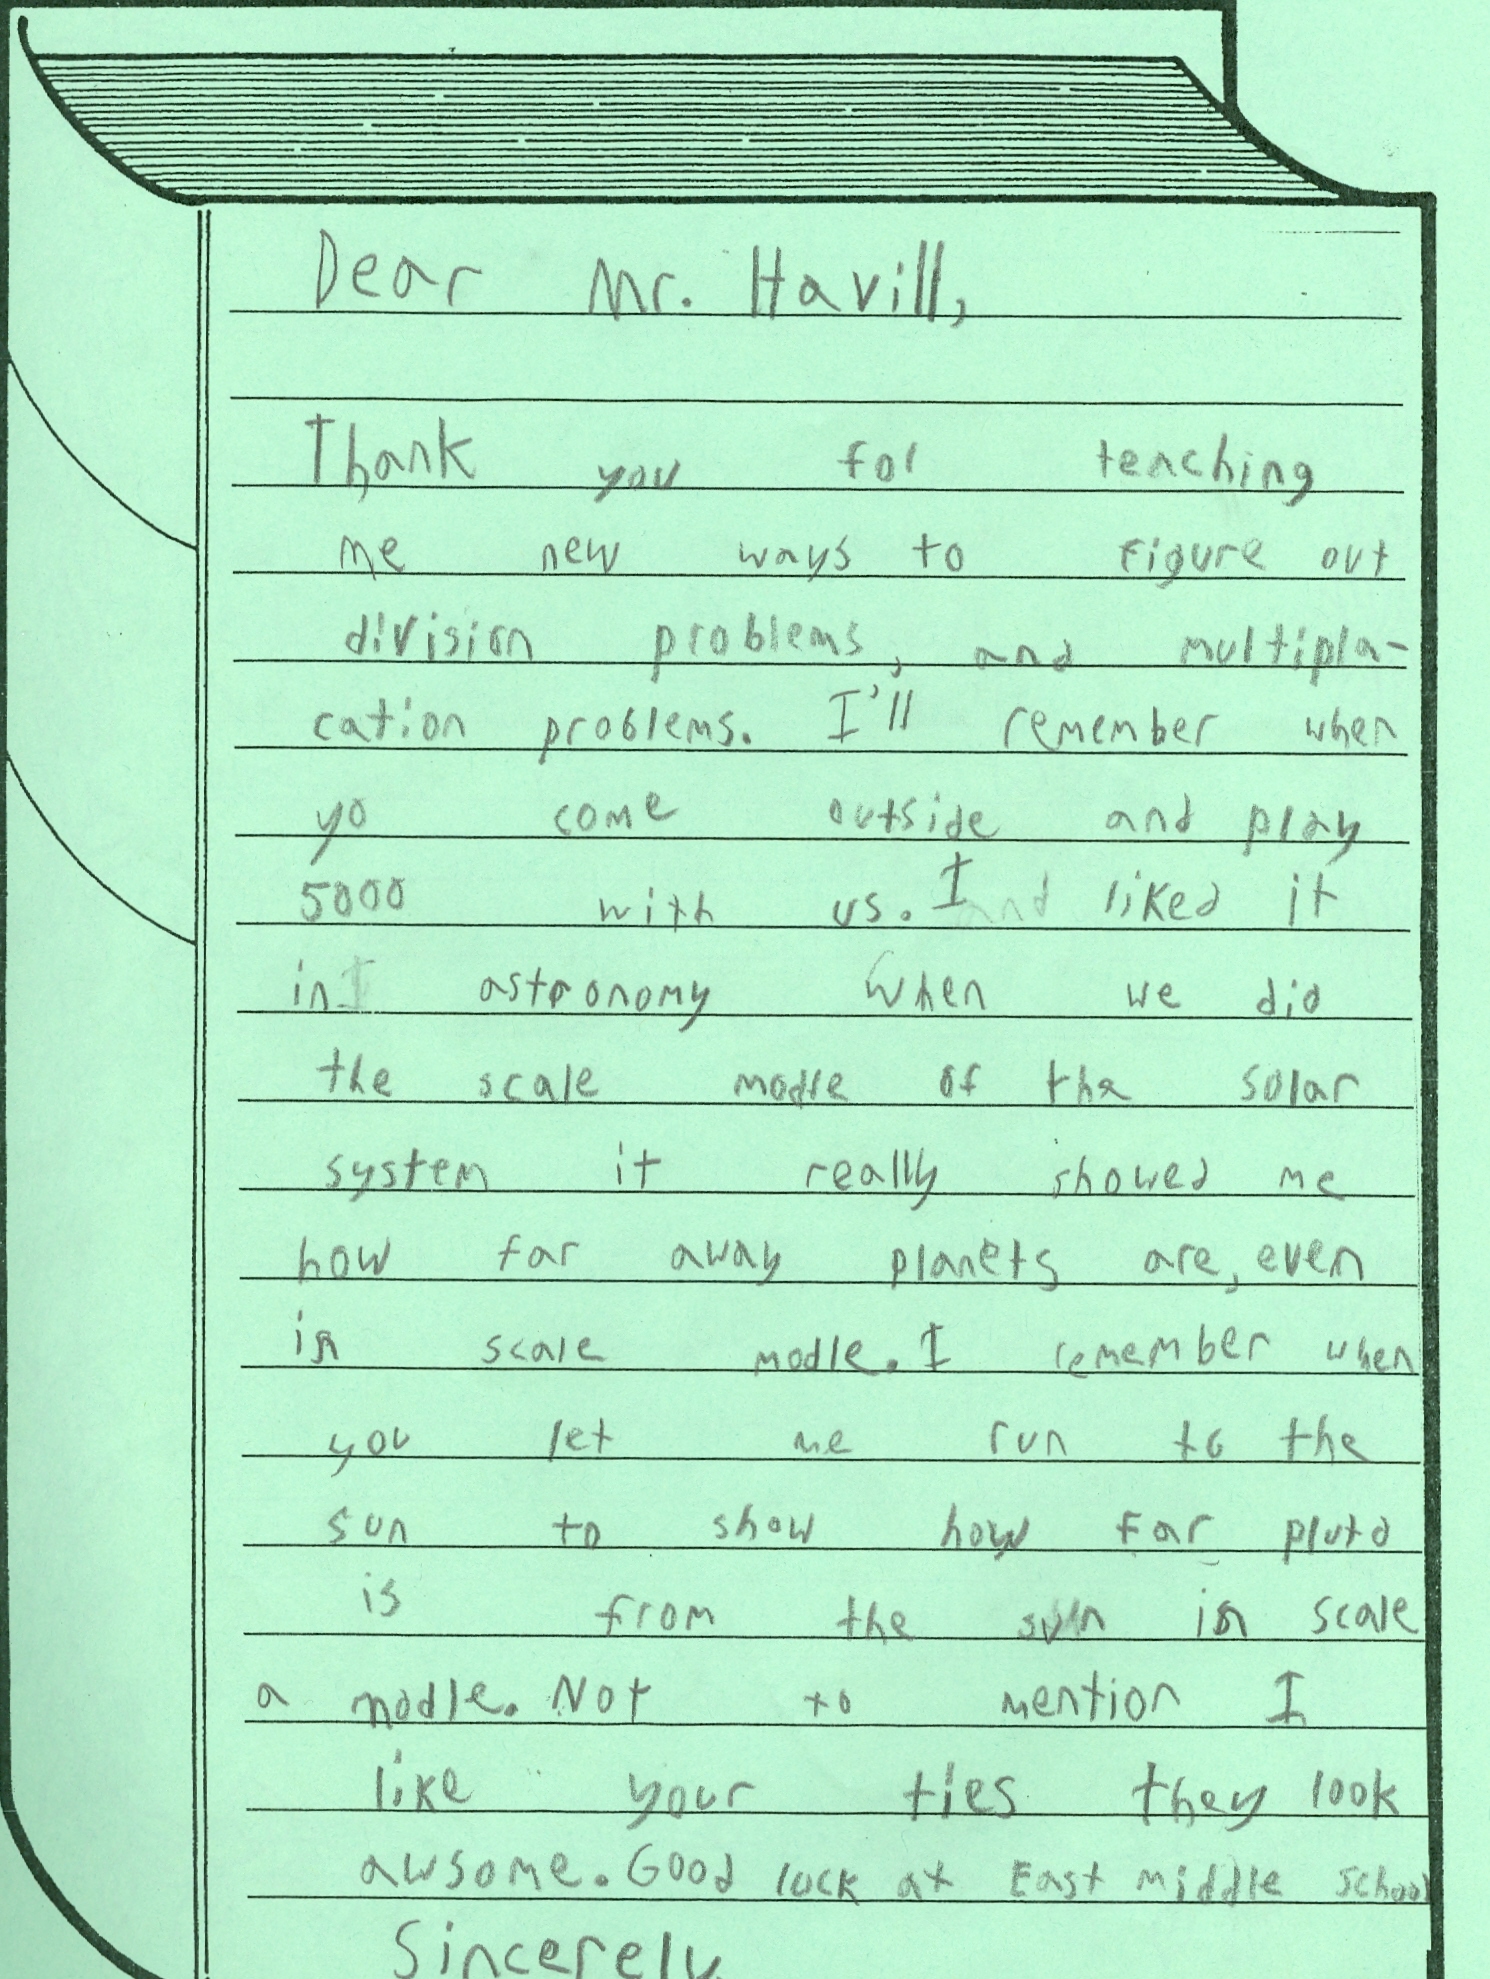 Dear Mr. Havill,
Thank you for teaching
me new ways to figure out
division problems, and multipla-
cation problems. I'll remember when
yo come outside and play
5000 with us. I liked it
in astronomy when we did
the scale modle of the solar
system it really showed me
how far away planets are, even
in scale modle. I remember when
you let me run to the
sun to show how far pluto
is from the sun in scale
a modle. Not to mention I
like your ties they look
awsome. Good luck at East middle school
Sincerely